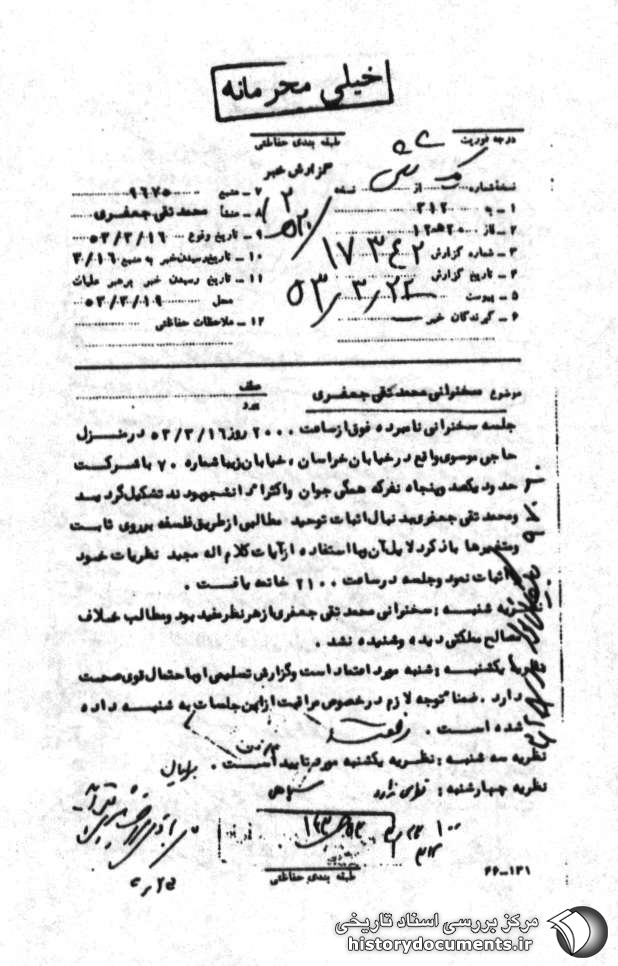 خیلی محرمانه
درجه فوریت
طبقه بندی حفاظتی
گزارش خبر
نسخه شماره از نسخه
۱ ـ به ۳۱۲
۲ ـ از ۲۰ ه‍ ۱۲
۳ ـ شماره گزارش ۱۷۳۴۲
۴ ـ تاریخ گزارش ۵۳/۳/۲۲
۵ ـ پیوست
۶ ـ گیرندگان خبر
۷ ـ منبع ۹۶۷۵
۸ ـ منشأ محمد تقی جعفری
۹ ـ تاریخ وقوع ۵۳/۳/۱۶
۱۰ ـ تاریخ رسیدن خبر به منبع ۳/۱۶
۱۱ ـ تاریخ رسیدن خبر برهبر عملیات
محل ۵۳/۳/۱۹
۱۲ ـ ملاحظات حفاظتی
موضوع سخنرانی محمد تقی جعفری
جلسه سخنرانی نامبرده فوق از ساعت ۲۰۰۰ روز ۵۳/۳/۱۶ در منزل
حاجی موسوی واقع در خیابان خراسان ، خیابان زیبا شماره ۷۰ با شرکت
حدود یکصد و پنجاه نفر که همگی جوان و اکثرا دانشجو بودند تشکیل گردید
و محمد تقی جعفری بدنبال اثبات توحید مطالبی از طریق فلسفه بر روی ثابت
و متغیرها با ذکر دلایل آن و با استفاده از آیات کلام اله مجید نظریات خود
را اثبات نمود و جلسه در ساعت ۲۱۰۰ خاتمه یافت .
نظریه شنبه : سخنرانی محمد تقی جعفری از هر نظر مفید بود و مطالب خلاف
مصالح مملکتی دیده و شنیده نشد .
نظریه یکشنبه : شنبه مورد اعتماد است و گزارش تسلیمی او با احتمال قوی صحت
دارد . ضمنا توجه لازم در خصوص مراقبت از این جلسات به شنبه داده
شده است .
نظریه سه شنبه : نظریه یکشنبه مورد تایید است .
نظریه چهارشنبه :
طبقه بندی حفاظتی
۶۶-۱۳۱
مرکز بررسی اسناد تاریخی
historydocuments.ir